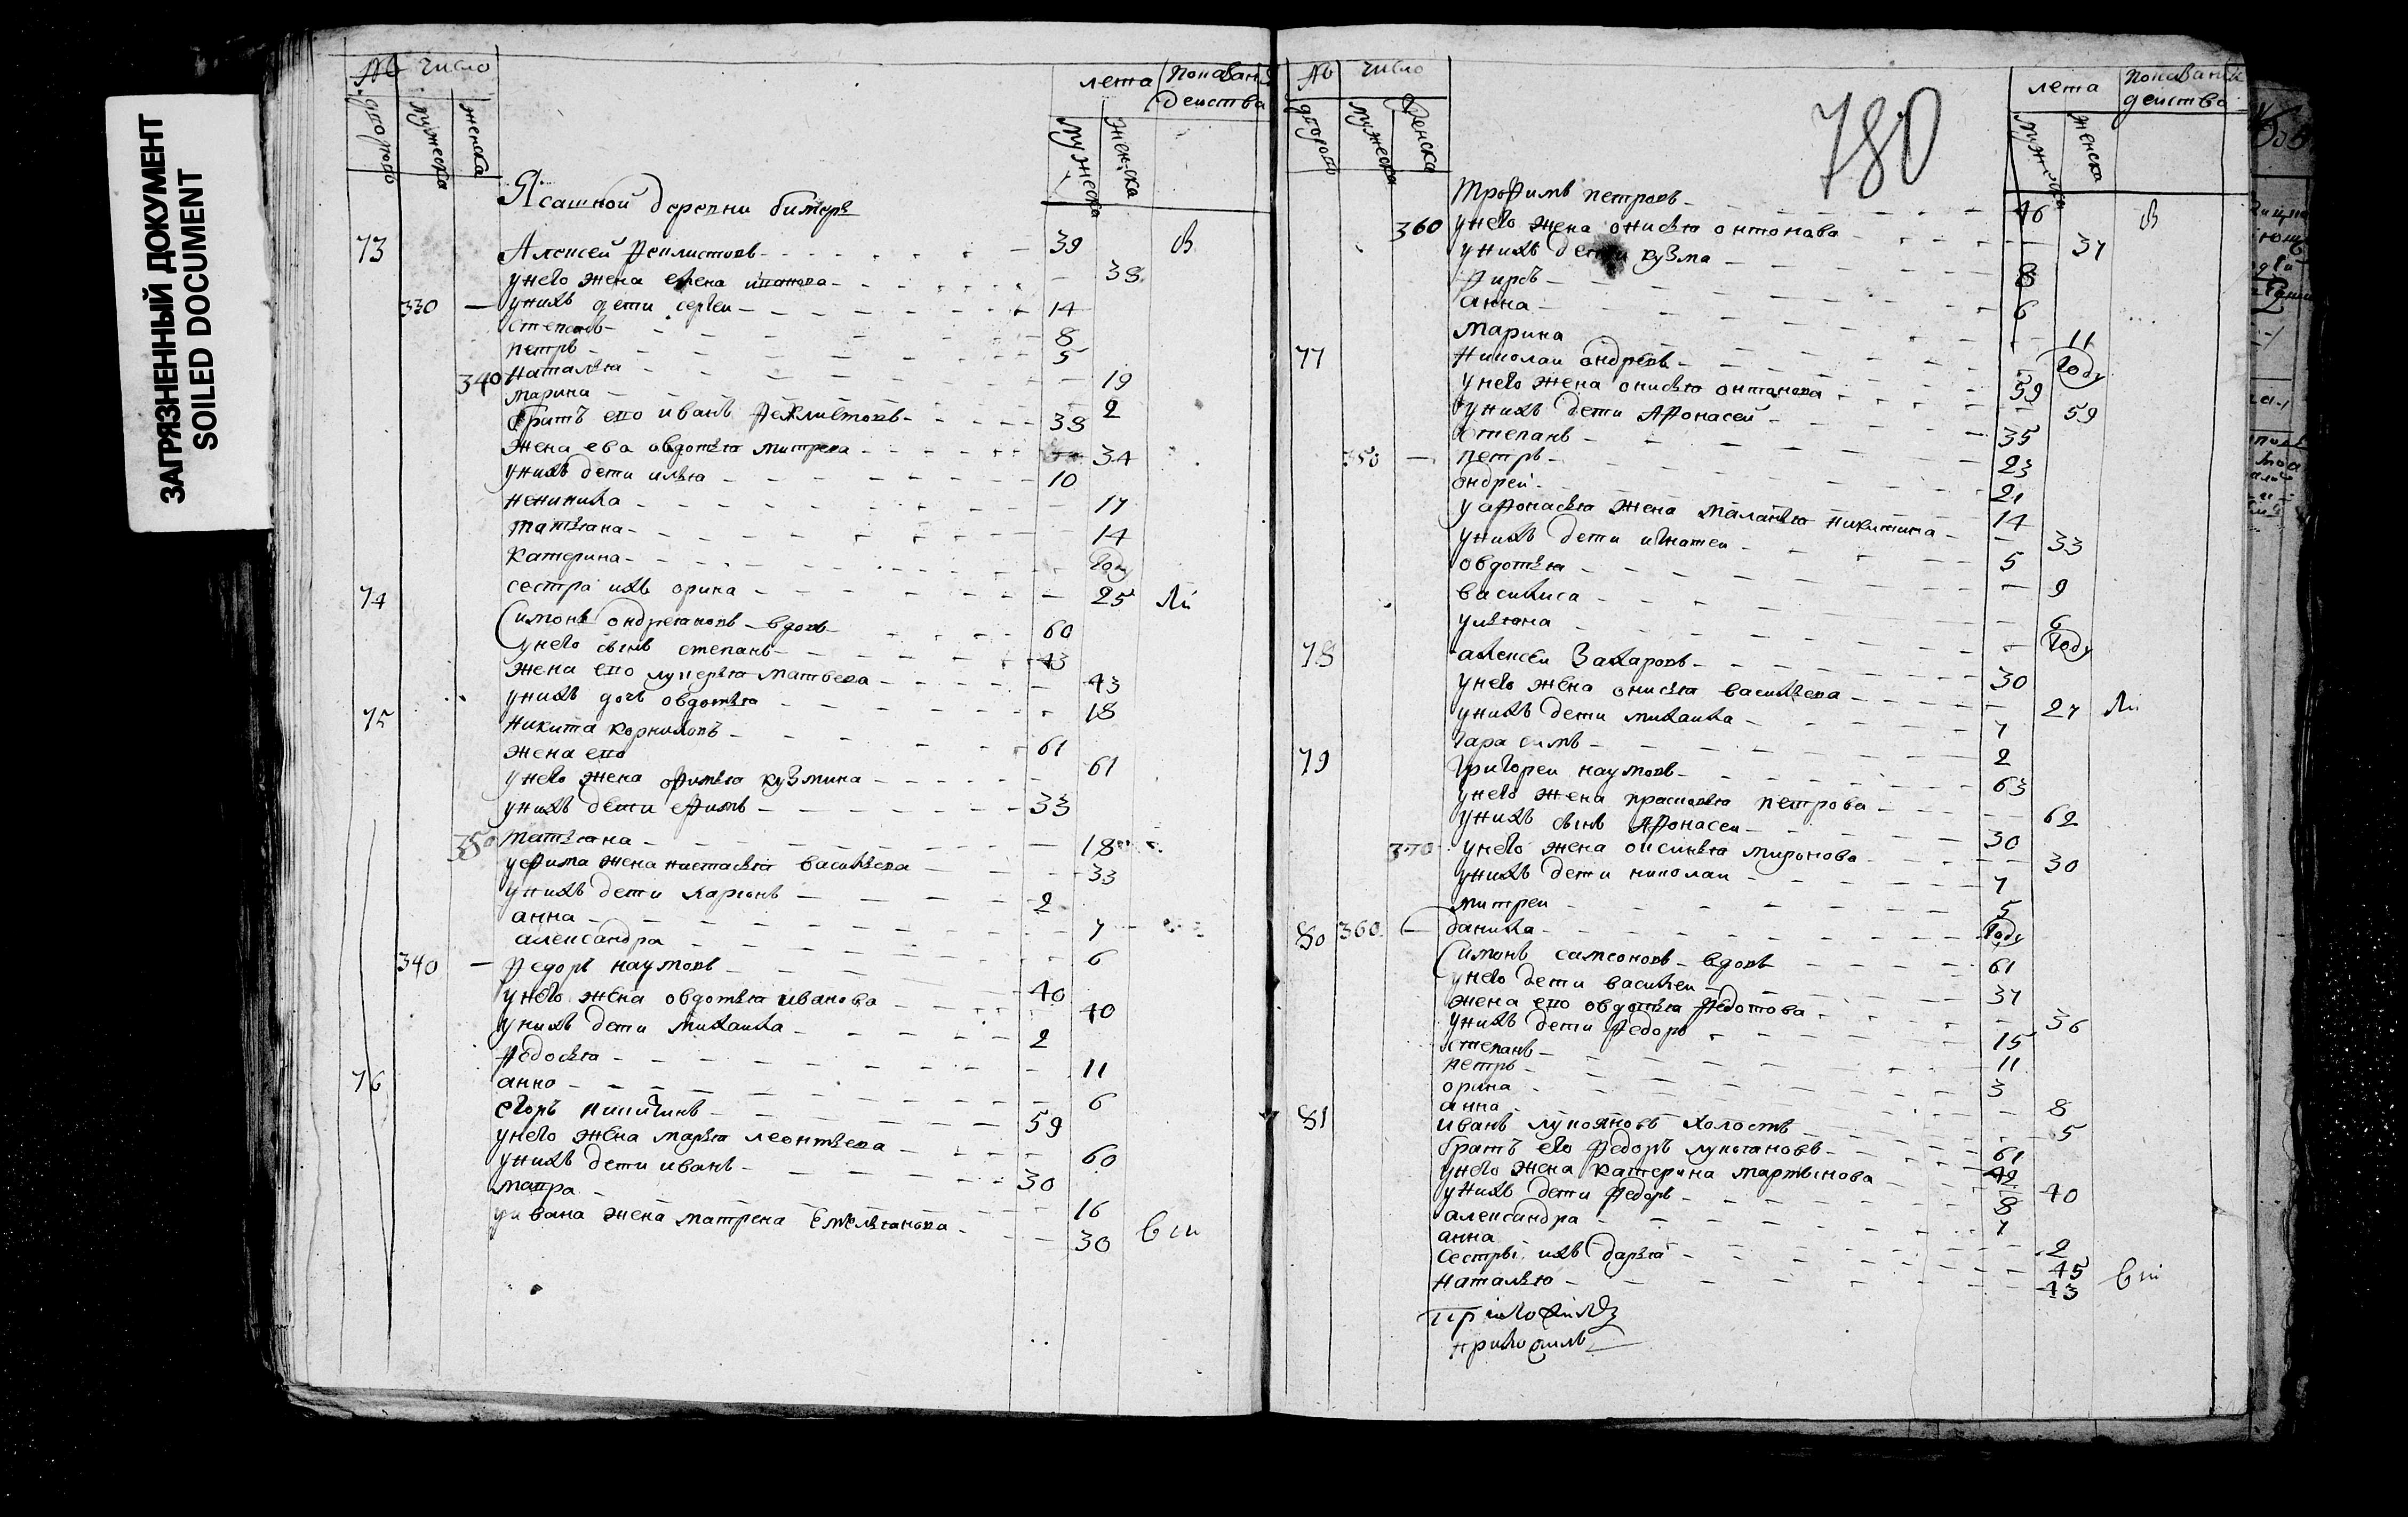 ЗАГРЯЗНЕННЫЙ ДОКУМЕНТ
SOILED DOCUMENT
№ число лета показан
дворовъ мужеска женска мужеска женска действа
Ясашной деревни
73 Алексей Феклистовъ 39 В
унего жена елена иванова 38
330 унихъ дети сергеи 14
степанъ 8
петръ 5
340 Наталья 19
марина 2
братъ ево иванъ Феклистовъ 38
жена ева овдотья митрева 34
унихъ дети илья 10
17
татьяна 14
катерина году
сестра ихъ орина 25 Ли
74 Симонъ ондреяновъ вдовъ 60
унего сынъ степанъ 43
жена ево лукерья матвева 43
унихъ дочь овдотья 18
75 Никита корниловъ 61
жена ево 61
унего жена офимья кузмина
унихъ дети ефимъ 33
350 татьяна 18
уефима жена настасья васильева 33
унихъ дети ларионъ 2
анна 7
александра 6
340 Федоръ наумовъ 40
унего жена овдотья иванова 40
унихъ дети михаила 2
Федосья 11
76 анна 6
егоръ никитинъ 59
унего жена марья леонтьева 60
унихъ дети иванъ 30
мавра 16
уивана жена матрена Емельянова 30 вли
№ число лета показани
дворовъ мужеска женска мужеска женска действа
780
трофимъ петровъ 46 В
360 унего жена онисья онтонова 37
унихъ дети кузма 8
Фирсъ 6
анна 11
марина году
77 Николаи ондревъ 59
унего жена онисья онтонова 59
унихъ дети Афонасей 35
степанъ 23
350 петръ 21
ондрей 14
уафонасья жена маланья никитина 33
унихъ дети игнатеи 5
овдотья 9
василиса 6
ульяна году
78 алексеи Захаровъ 30
унего жена онисья васильева 27 Ли
унихъ дети михаила 7
гарасимъ 2
79 Григореи наумовъ 63
унего жена прасковья петрова 62
унихъ сынъ Афонасеи 30
370 унего жена оксинья миронова 30
унихъ дети николаи 7
митреи 5
80 360 данила году
Симонъ самсоновъ вдовъ 61
унего дети василеи 37
жена ево овдотья Федотова 36
унихъ дети Федоръ 15
степанъ 11
петръ 3
орина 8
анна 5
81 иванъ лукояновъ холостъ 61
братъ его Федоръ лукьановъ 42
унего жена катерина мартынова 40
унихъ дети Федоръ 8
александра 7
анна 2
сестры ихъ дарья 45
наталья 43 вли